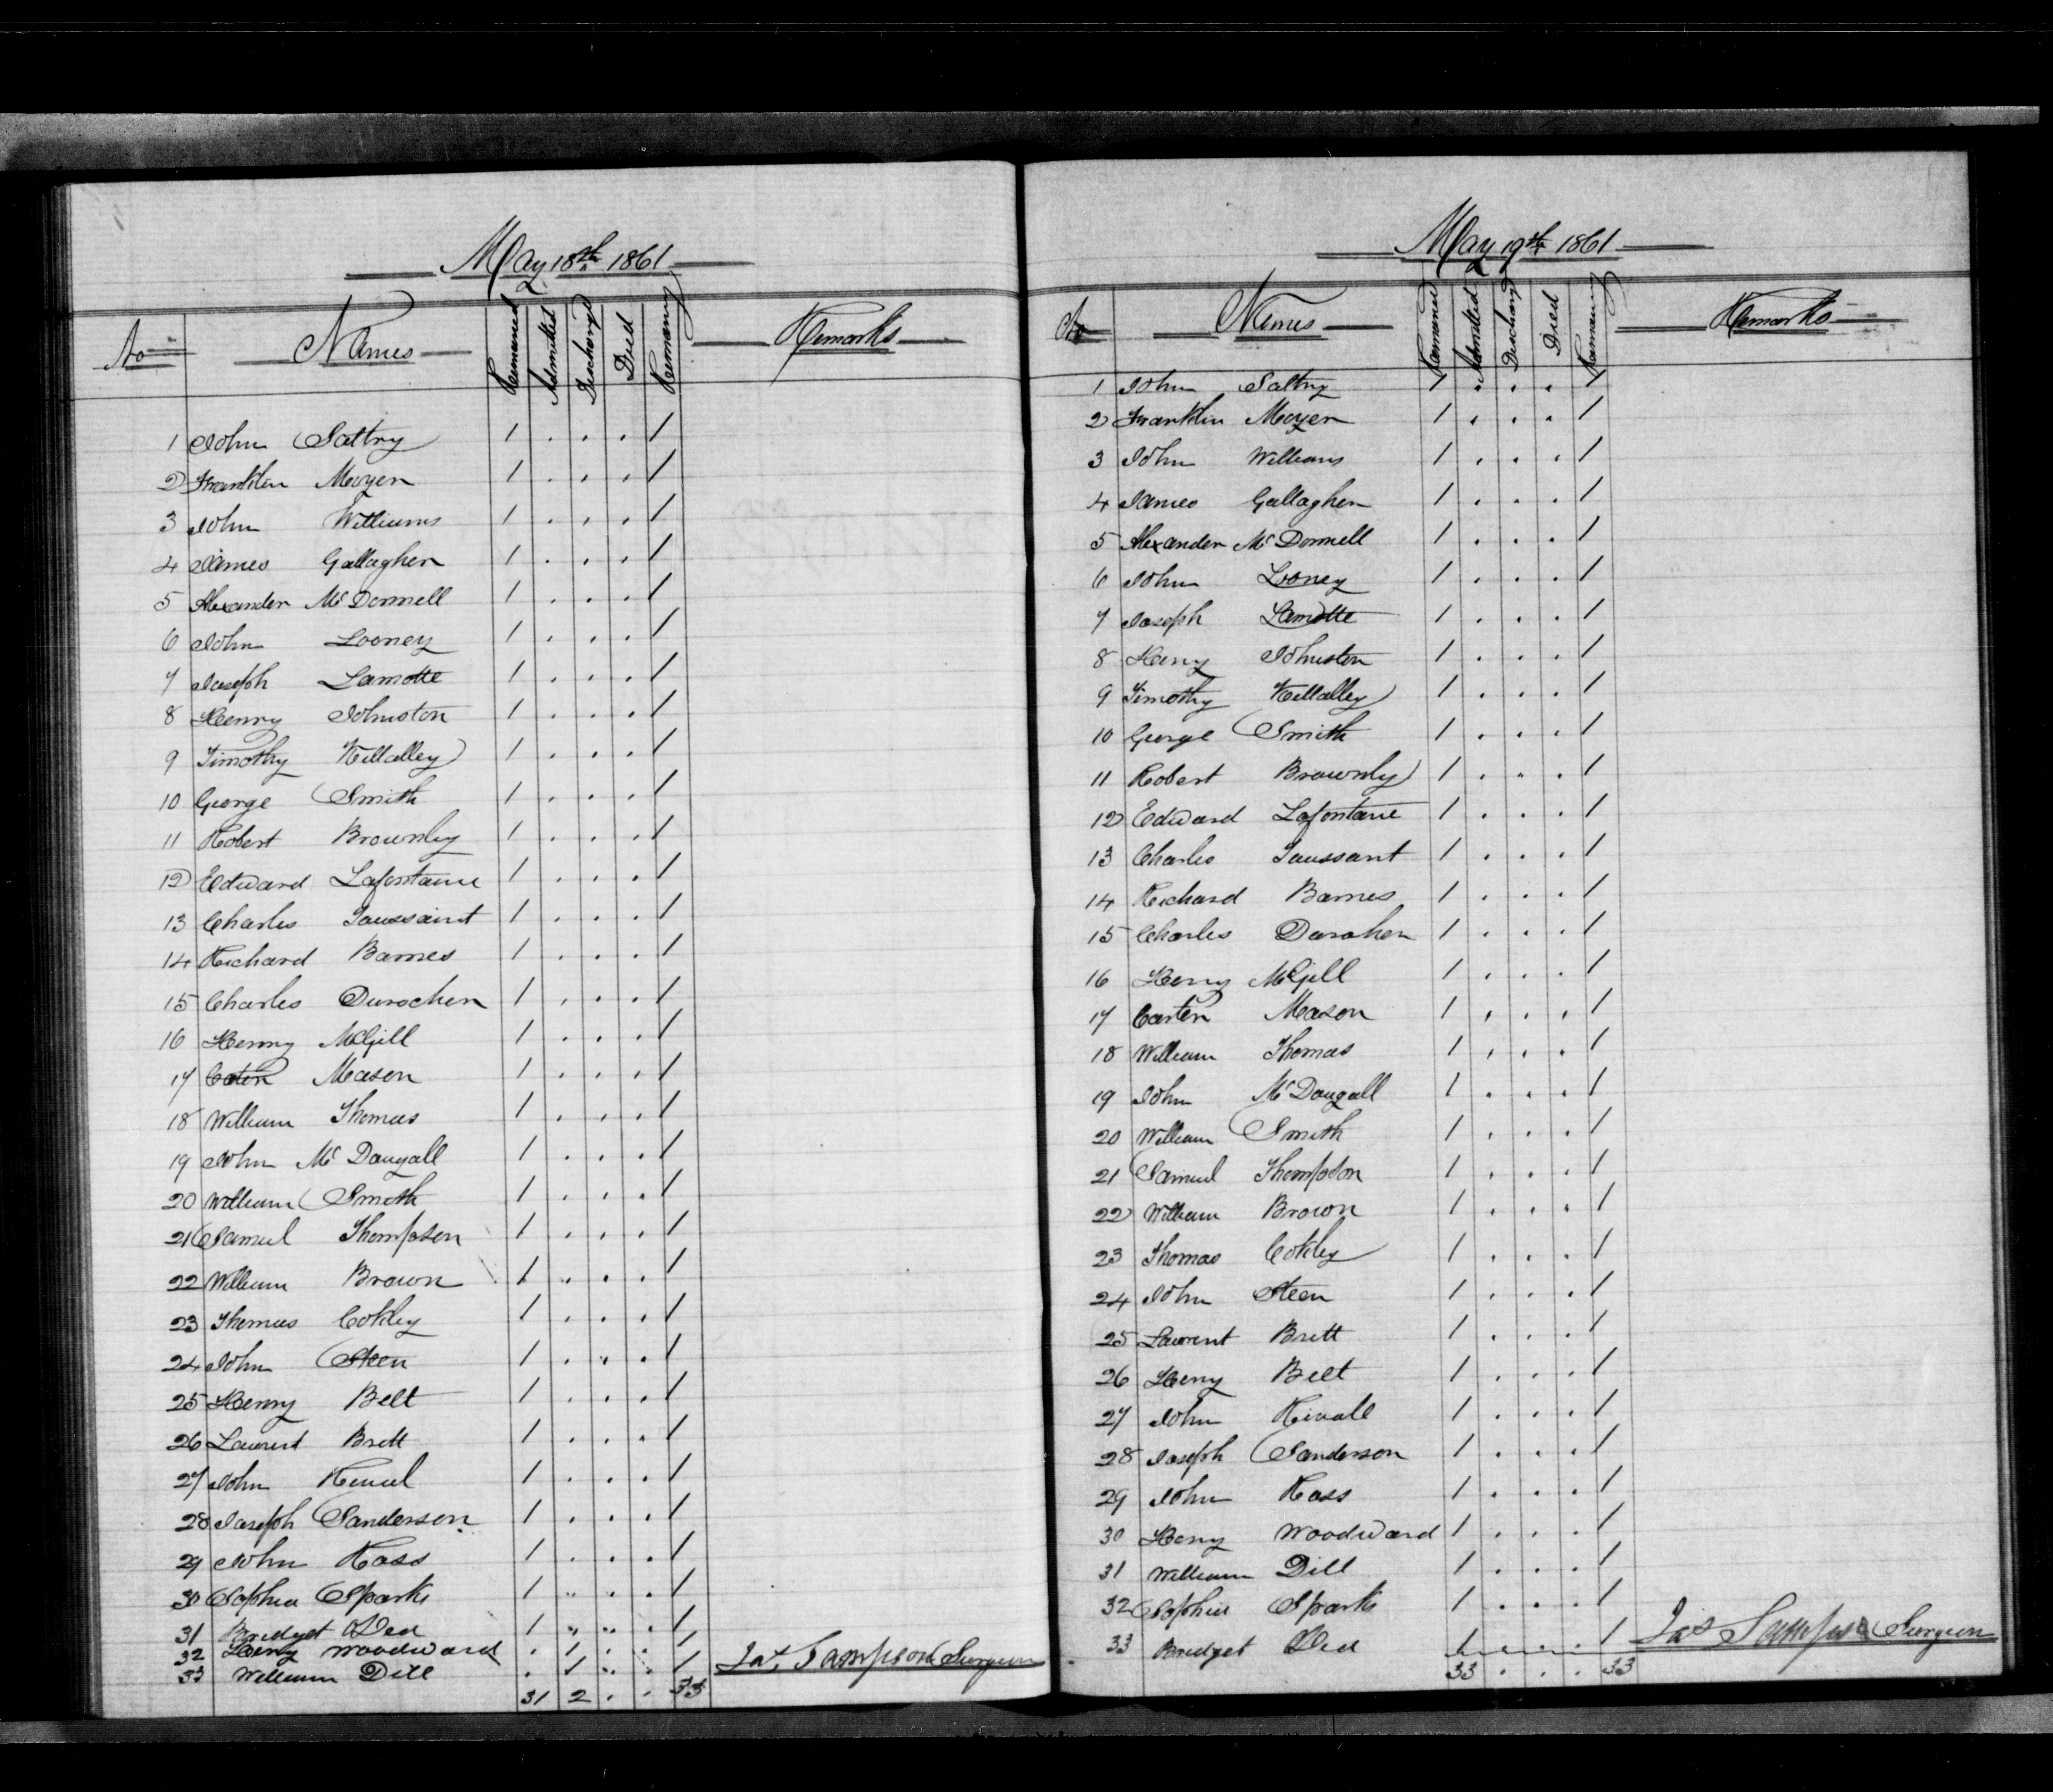 May 18th 1861
No Names Remained Admitted Discharged Died Remaining Remarks
1 John Saltry 1 . . . 1
2 Franklin Moyer 1 . . . 1
3 John Williams 1 . . . 1
4 James Gallagher 1 . . . 1
5 Alexander McDonnell 1 . . . 1
6 John Looney 1 . . . 1
7 Joseph Lamotte 1 . . . 1
8 Henry Johnston 1 . . . 1
9 Timothy Killalley 1 . . . 1
10 George Smith 1 . . . 1
11 Robert Brownly 1 . . . 1
12 Edward Lafontaine 1 . . . 1
13 Charles Toussaint 1 . . . 1
14 Richard Barnes 1 . . . 1
15 Charles Durocher 1 . . . 1
16 Henry McGill 1 . . . 1
17 Mason 1 . . . 1
18 William Thomas 1 . . . 1
19 John McDougall 1 . . . 1
20 William Smith 1 . . . 1
21 Samuel Thompson 1 . . . 1
22 William Brown 1 . . . 1
23 Thomas Cokley 1 . . . 1
24 John Steen 1 . . . 1
25 Henry Belt 1 . . . 1
26 Laurent Brett 1 . . . 1
27 John 1 . . . 1
28 Joseph Sanderson 1 . . . 1
29 John Ross 1 . . . 1
30 Sophia Sparks 1 . . . 1
31 Bridget 1 . . . 1
32 Henry Woodward . 1 . . 1
33 William Dill . 1 . . 1 Jas. Sampson Surgeon
31 2 . . 33
May 19th 1861
No Names Remained Admitted Discharged Died Remaining Remarks
1 John Saltry 1 . . . 1
2 Franklin Moyer 1 . . . 1
3 John Williams 1 . . . 1
4 James Gallagher 1 . . . 1
5 Alexander McDonnell 1 . . . 1
6 John Looney 1 . . . 1
7 Joseph Lamotte 1 . . . 1
8 Henry Johnston 1 . . . 1
9 Timothy Killalley 1 . . . 1
10 George Smith 1 . . . 1
11 Robert Brownly 1 . . . 1
12 Edward Lafontaine 1 . . . 1
13 Charles Toussant 1 . . . 1
14 Richard Barnes 1 . . . 1
15 Charles Duroher 1 . . . 1
16 Henry McGill 1 . . . 1
17 Carter Mason 1 . . . 1
18 William Thomas 1 . . . 1
19 John McDougall 1 . . . 1
20 William Smith 1 . . . 1
21 Samuel Thompson 1 . . . 1
22 William Brown 1 . . . 1
23 Thomas Cokley 1 . . . 1
24 John Steen 1 . . . 1
25 Laurent Brett 1 . . . 1
26 Henry Belt 1 . . . 1
27 John 1 . . . 1
28 Joseph Sanderson 1 . . . 1
29 John Ross 1 . . . 1
30 Henry Woodward 1 . . . 1
31 William Dill 1 . . . 1
32 Sophia Sparks 1 . . . 1
33 Bridget 1 . . . 1 Jas Sampson Surgeon
33 . . . 33